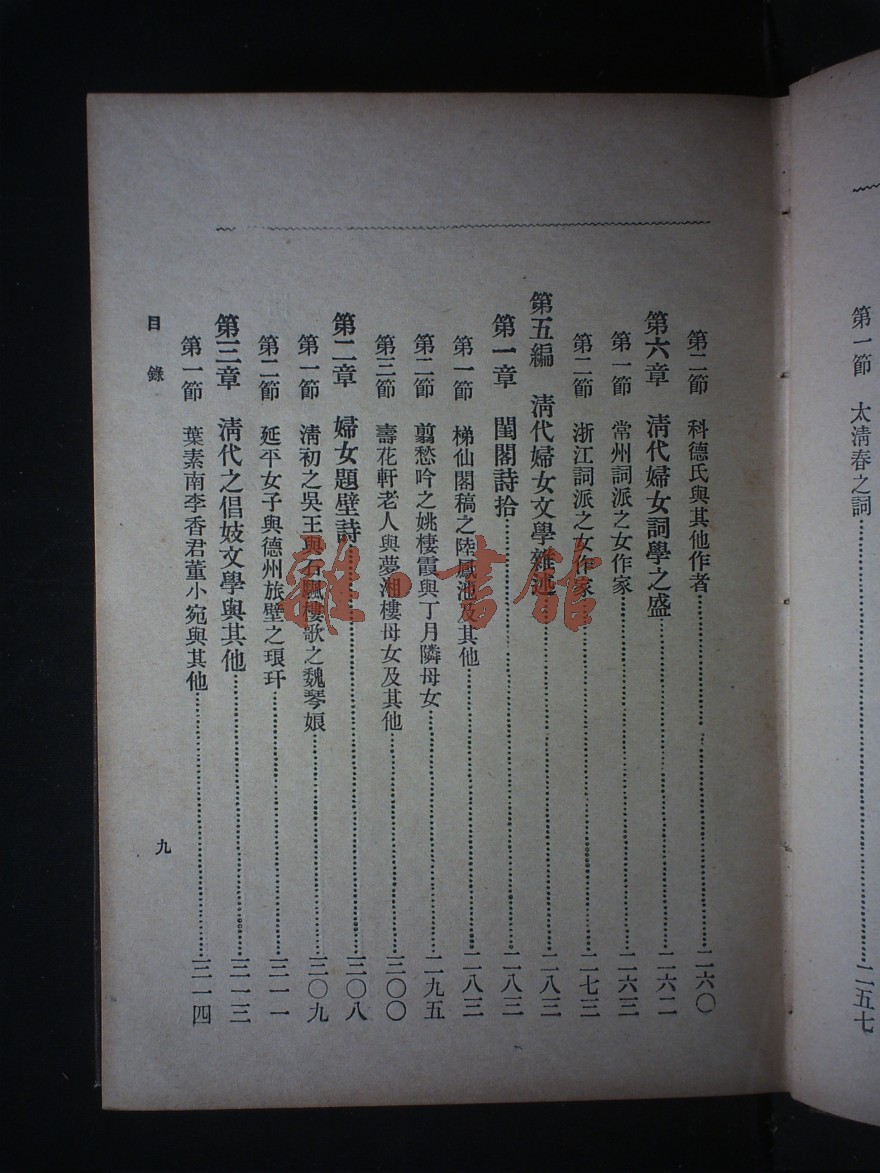 第一節　太淸春之詞………二五七
第二節　科德氏與其他作者………二六〇
第六章　淸代婦女詞學之盛………二六二
第一節　常州詞派之女作家………二六三
第二節　浙江詞派之女作家………二七三
第五編　淸代婦女文學雜述………二八三
第一章　閨閣詩拾………二八三
第一節　梯仙閣稿之陸鳳池及其他………二八三
第二節　翦愁吟之姚棲霞與丁月隣母女………二九五
第三節　壽花軒老人與夢湘樓母女及其他………三〇〇
第二章　婦女題壁詩………三〇八
第一節　淸初之吳王與石颿樓歌之魏琴娘………三〇九
第二節　延平女子與德州旅壁之琅玕………三一一
第三章　淸代之倡妓文學與其他………三一三
第一節　葉素南李香君董小宛與其他………三一四
目錄
九
雜·書館